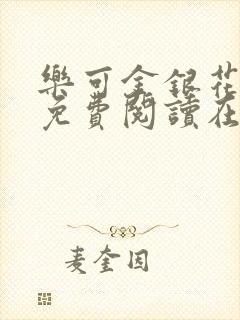 樂可金銀花
免費閱讀在
麦奎因